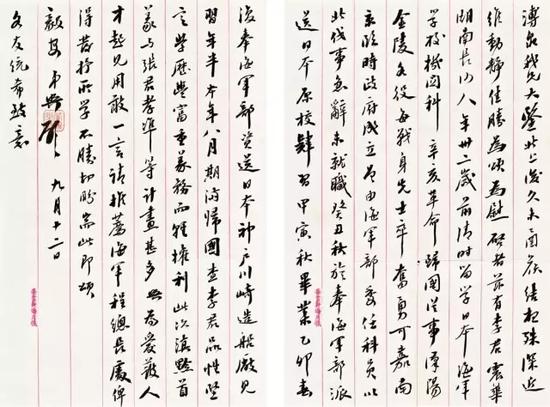 溥泉我兄大鑒北上後久未結想殊深近
維動靜佳勝為頌為慰啟者茲有李君震華
湖南長沙人年卅二歲前清時留學日本海軍
學校機関科辛亥革命歸國從事漢陽
金陵各役每戰身先士卒奮勇可嘉南
京臨時政府成立曾由海軍部委任科員以
北伐事急辭未就職癸丑秋於奉海軍部派
送日本原校肄習甲寅秋畢業乙卯春
復奉海軍部資送日本神戶川崎造船廠見
習年半本年八月期滿歸國查李君品性堅
學歷豐富重義務而輕權利此次滇黔首
義与張君孝準等計畫甚多興為愛護人
才起見用敢一言請推薦海軍程總長處俾
得發抒所學不勝切盼耑此即頌
毅安 弟興 九月十二日
各友統希致意